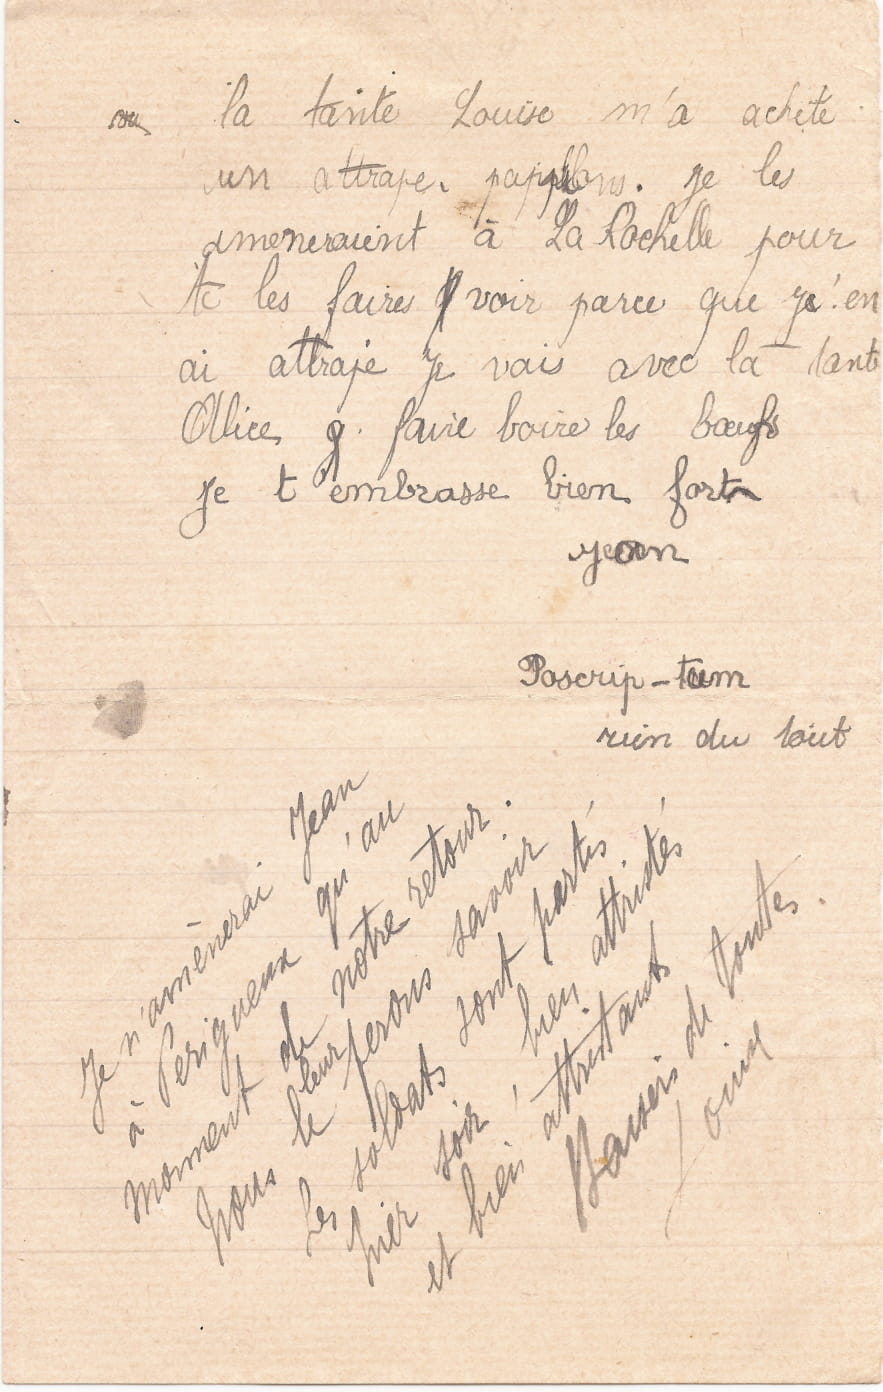 la tante Louise m'a achete
un attrape. papillons. je les
ameneraient à La Rochelle pour
te les faires voir parce que je'en
ai attrape je vais avec la tante
Alice faire boire les bœufs
je t'embrasse bien fort
jean
Poscrip-tum
rien du tout
Je n'amènerai Jean
à Perigueux qu'au
moment de notre retour.
Nous le leur ferons savoir
Les soldats sont partis
hier soir, bien attristés
et bien attristants
Baisers de toutes.
Louise